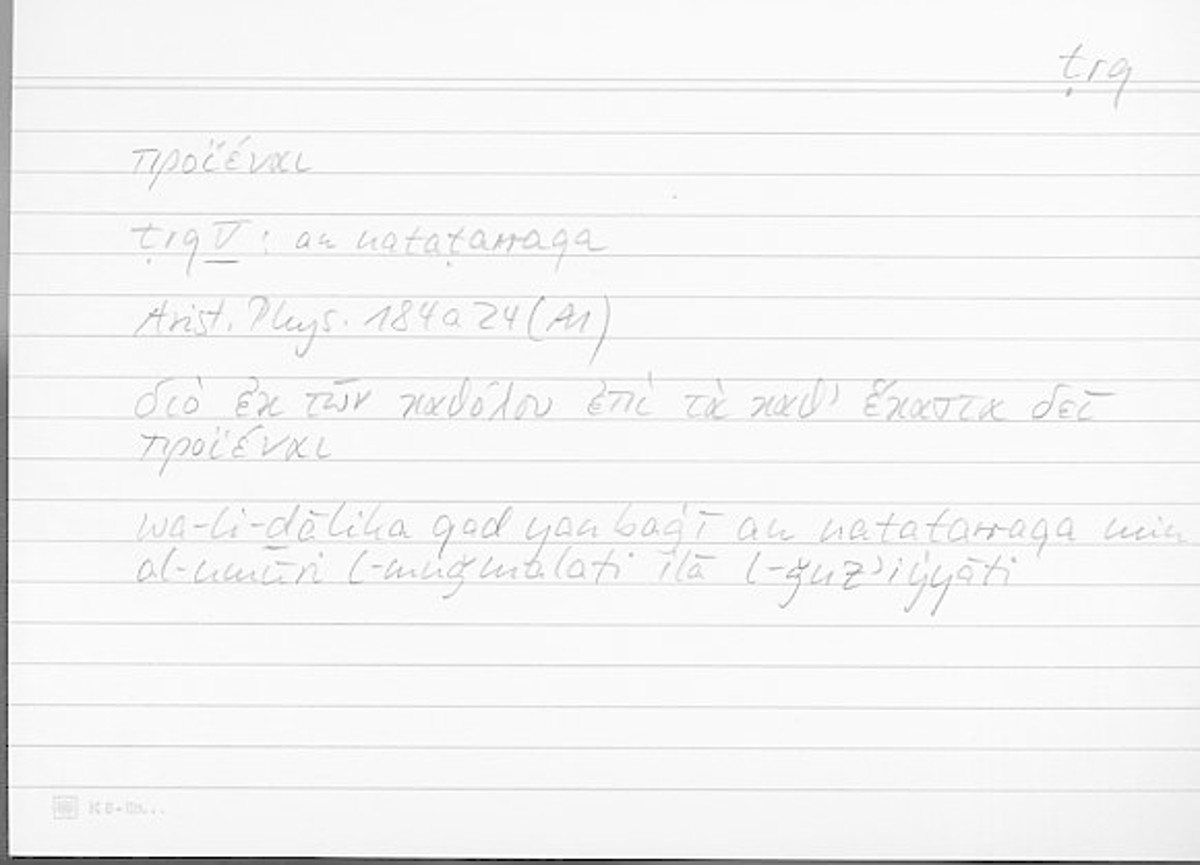 ṭrq
προϊέναι
ṭrq V : an nataṭarraqa
Arist. Phys. 184 a 24 (A1)
διὸ ἐκ τῶν καθόλου ἐπὶ τὰ καθ’ ἕκαστα δεῖ
προϊέναι
wa-li-ḏālika qad yanbaġī an natatarraqa min
al-umūri l-muǧmalati ilā l-ǧuzʾiyyāti